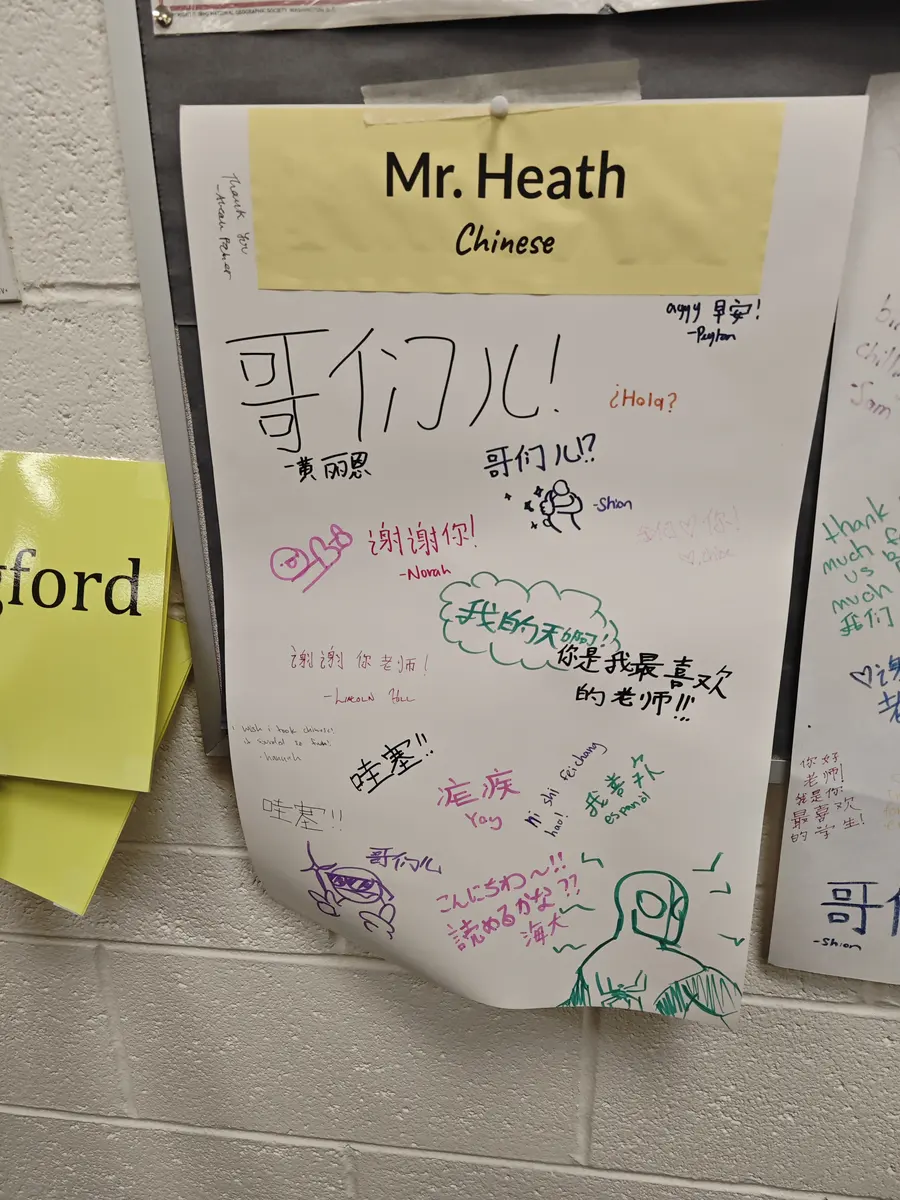 Mr. Heath
Chinese
Thank you
aggy 早安!
-Peyton
哥们儿!
¿Hola?
-黄丽恩
哥们儿!?
-Shion
谢谢你!
-Norah
我的天啊!
你是我最喜欢
的老师!!!
谢谢你老师!
-Lincoln
i wish i took chinese!
-hannah
哇塞!!
Yay
ni shi feichang
hao!
我喜欢
espanol
哇塞!!
哥们儿
こんにちわ〜!!
読めるかな??
海大
gford
-Sam
thank
much
us
much
我们
♡谢
老
你好
老师!
我是你
最喜欢
的学生!
哥们
-Shion